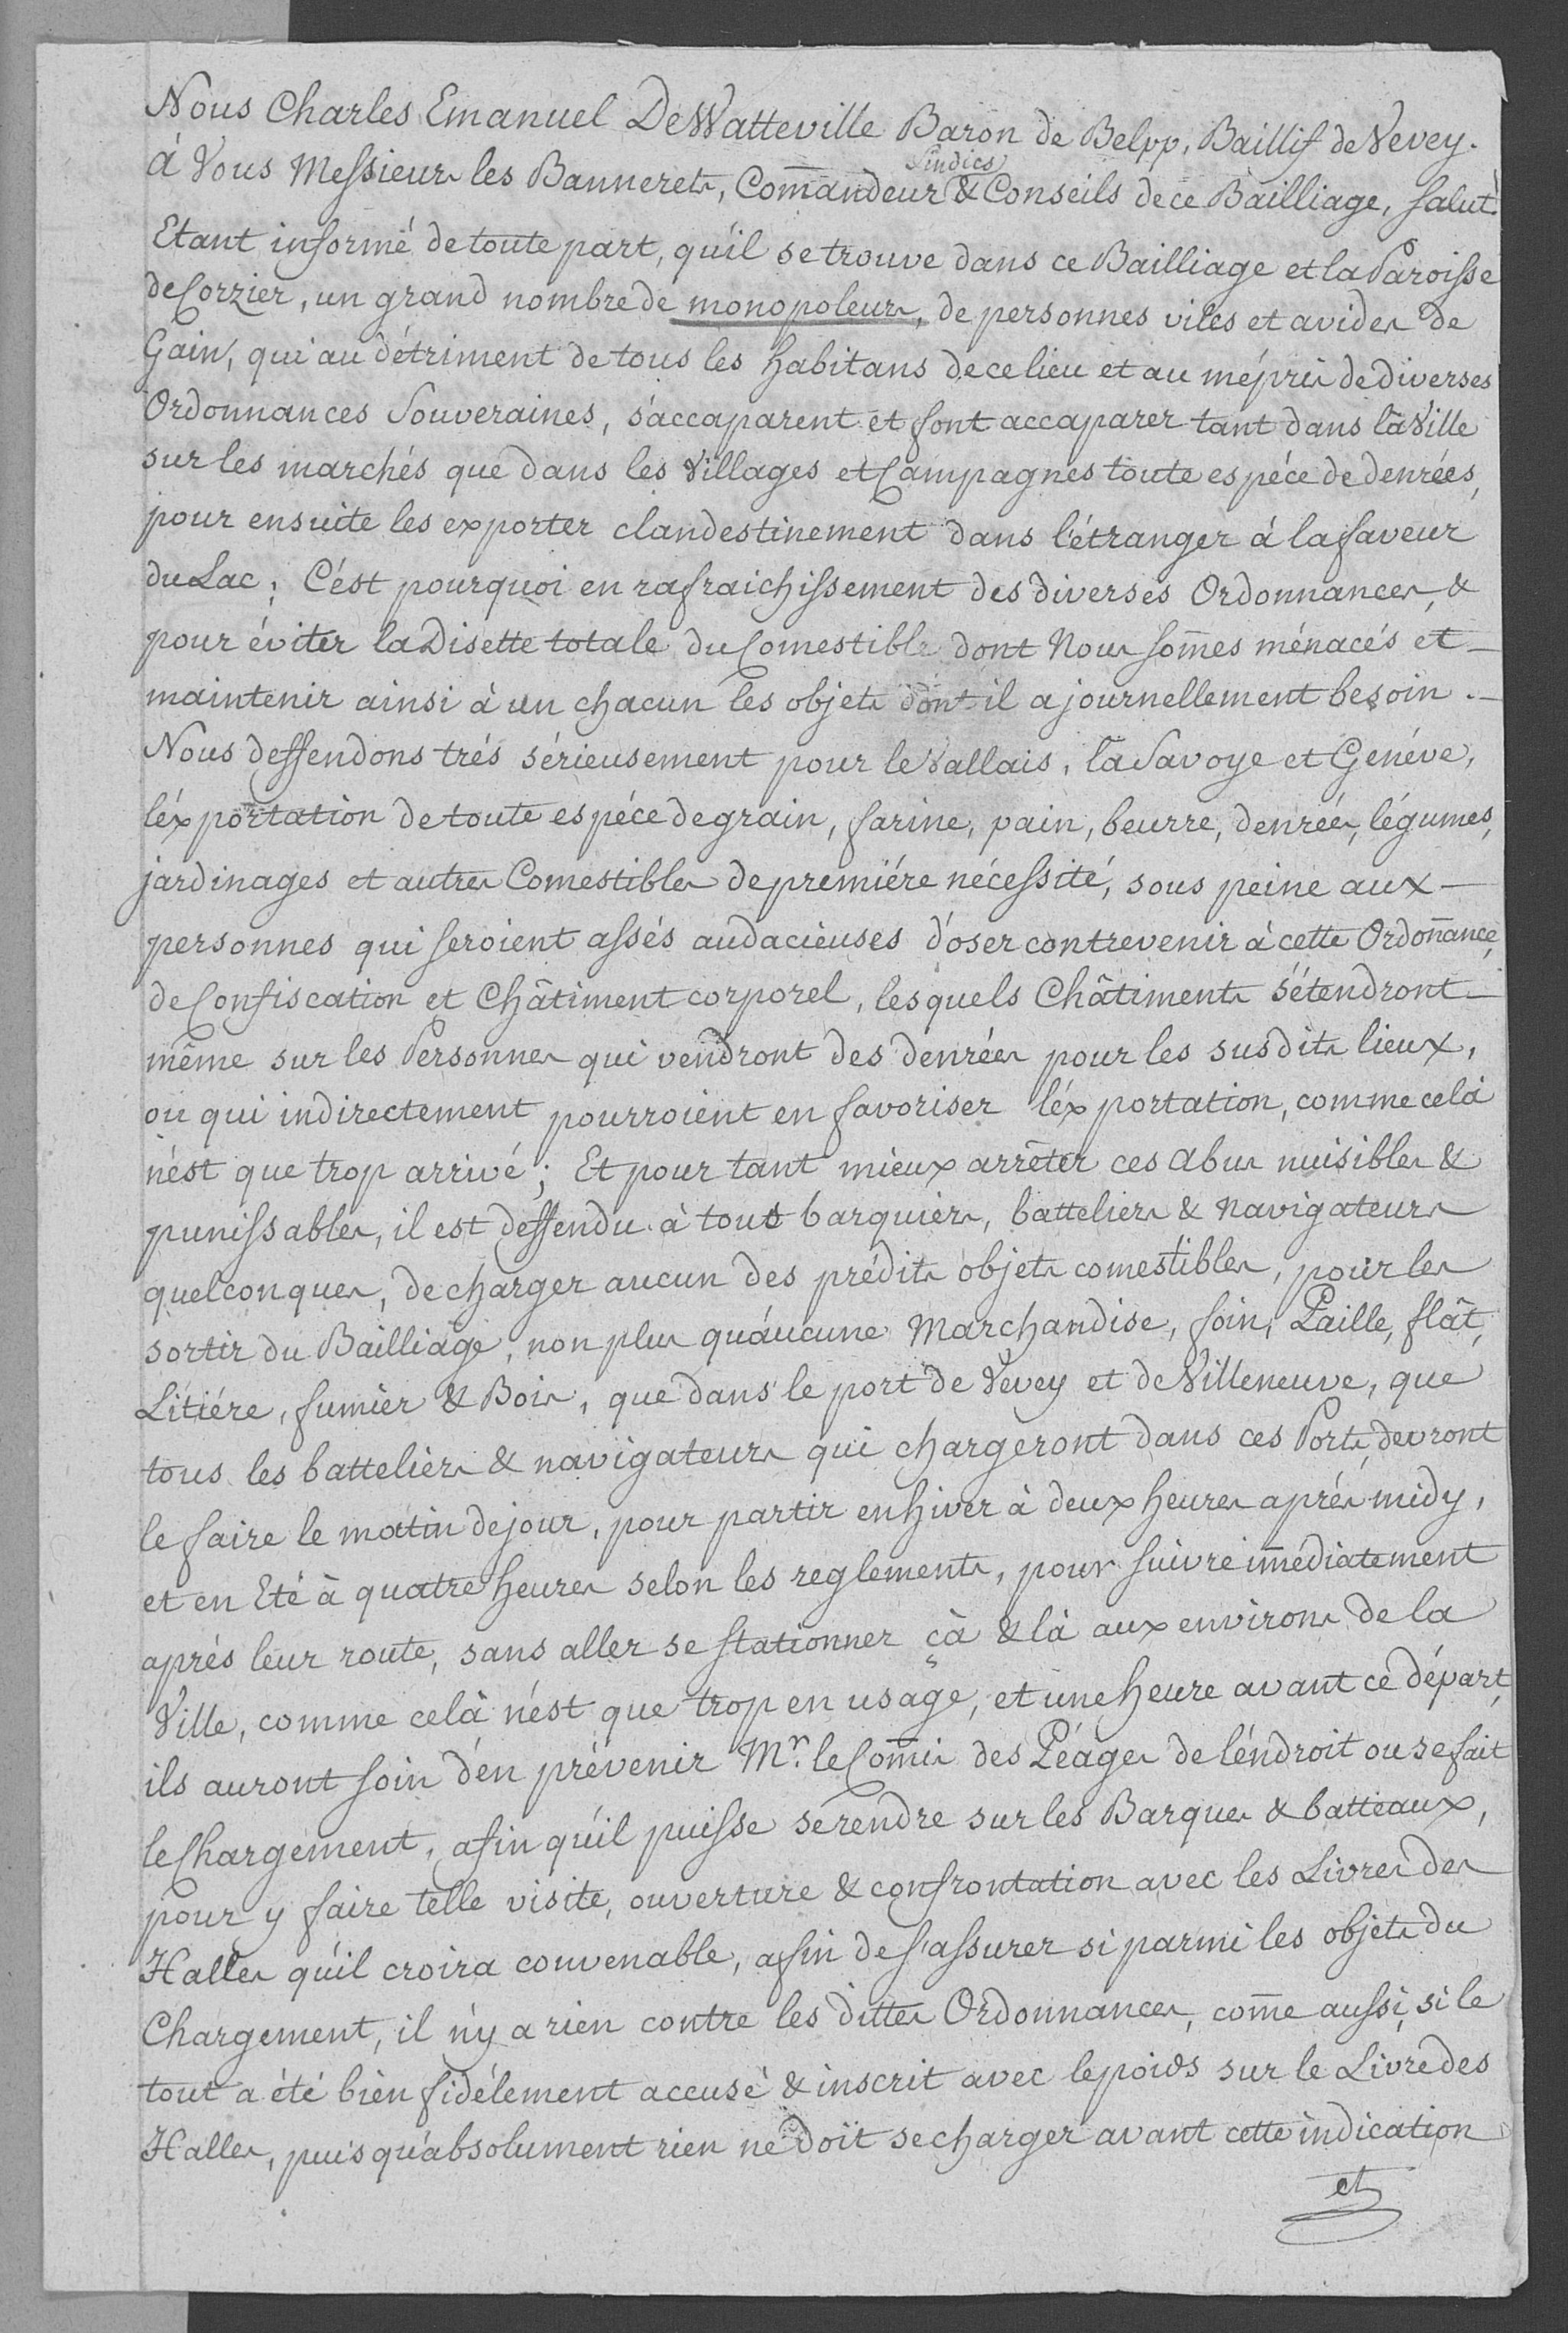 Nous Charles Emanuel DeWatteville Baron de Belpp, Baillif de Vevey.
à Vous Messieurs les Bannerets, Com̄andeur Sindics & Conseils de ce Bailliage, salut.
Etant informé de toute part, qu'il se trouve dans ce Bailliage et la Paroisse
de Corzier, un grand nombre de monopoleurs, de personnes viles et avides de
Gain, qui au détriment de tous les habitans de ce lieu et au mépris de diverses
Ordonnances Souveraines, s'accaparent et font accaparer tant dans la Ville
sur les marchés que dans les Villages et Campagnes toute espéce de denrées,
pour ensuite les exporter clandestinement dans l'étranger à la faveur
du Lac; C'ést pourquoi en rafraichissement des diverses Ordonnances, &
pour éviter la Disette totale du Comestible dont Nous som̄es ménacés et
maintenir ainsi à un chacun les objets dont il a journellement besoin.
Nous deffendons trés sérieusement pour le Vallais, la Savoye et Genéve,
l'éxportation de toute espéce de grain, farine, pain, beurre, denrées, légumes,
jardinages et autres Comestibles de premiére nécessité, sous peine aux
personnes qui seroient assés audacieuses d'oser contrevenir à cette Ordon̄ance,
de Confiscation et Châtiment corporel, lesquels Châtiments s'étendront
même sur les Personnes qui vendront des denrées pour les susdits lieux,
ou qui indirectement pourroient en favoriser l'éxportation, comme celà
n'ést que trop arrivé; Et pour tant mieux arrêter ces abus nuisibles &
punissables, il est deffendu à tous barquiers, batteliers & Navigateurs
quelconques, de charger aucun des prédits objets comestibles, pour les
sortir du Bailliage, non plus qu'aucune Marchandise, foin, Paille, flât,
Litiére, fumier & Bois, que dans le port de Vevey et de Villeneuve, que
tous les batteliers & navigateurs qui chargeront dans ces Ports, devront
le faire le matin de jour, pour partir en hiver à deux heures aprés midy,
et en Eté à quatre heures selon les reglements, pour suivre im̄ediatement
aprés leur route, sans aller se stationner çà & là aux environs de la
Ville, comme celà n'ést que trop en usage, et une heure avant ce départ,
ils auront soin d'en prévenir Mr. le Com̄is des Péages de l'éndroit ou se fait
le Chargement, afin qu'il puisse se rendre sur les Barques & batteaux,
pour y faire telle visite, ouverture & confrontation avec les Livres des
Halles qu'il croira convenable, afin de s'assurer si parmi les objets du
Chargement, il n'y a rien contre les dittes Ordonnances, com̄e aussi, si le
tout a été bien fidélement accusé & inscrit avec le poids sur le Livre des
Halles, puis qu'absolument rien ne doit se charger avant cette indication
et